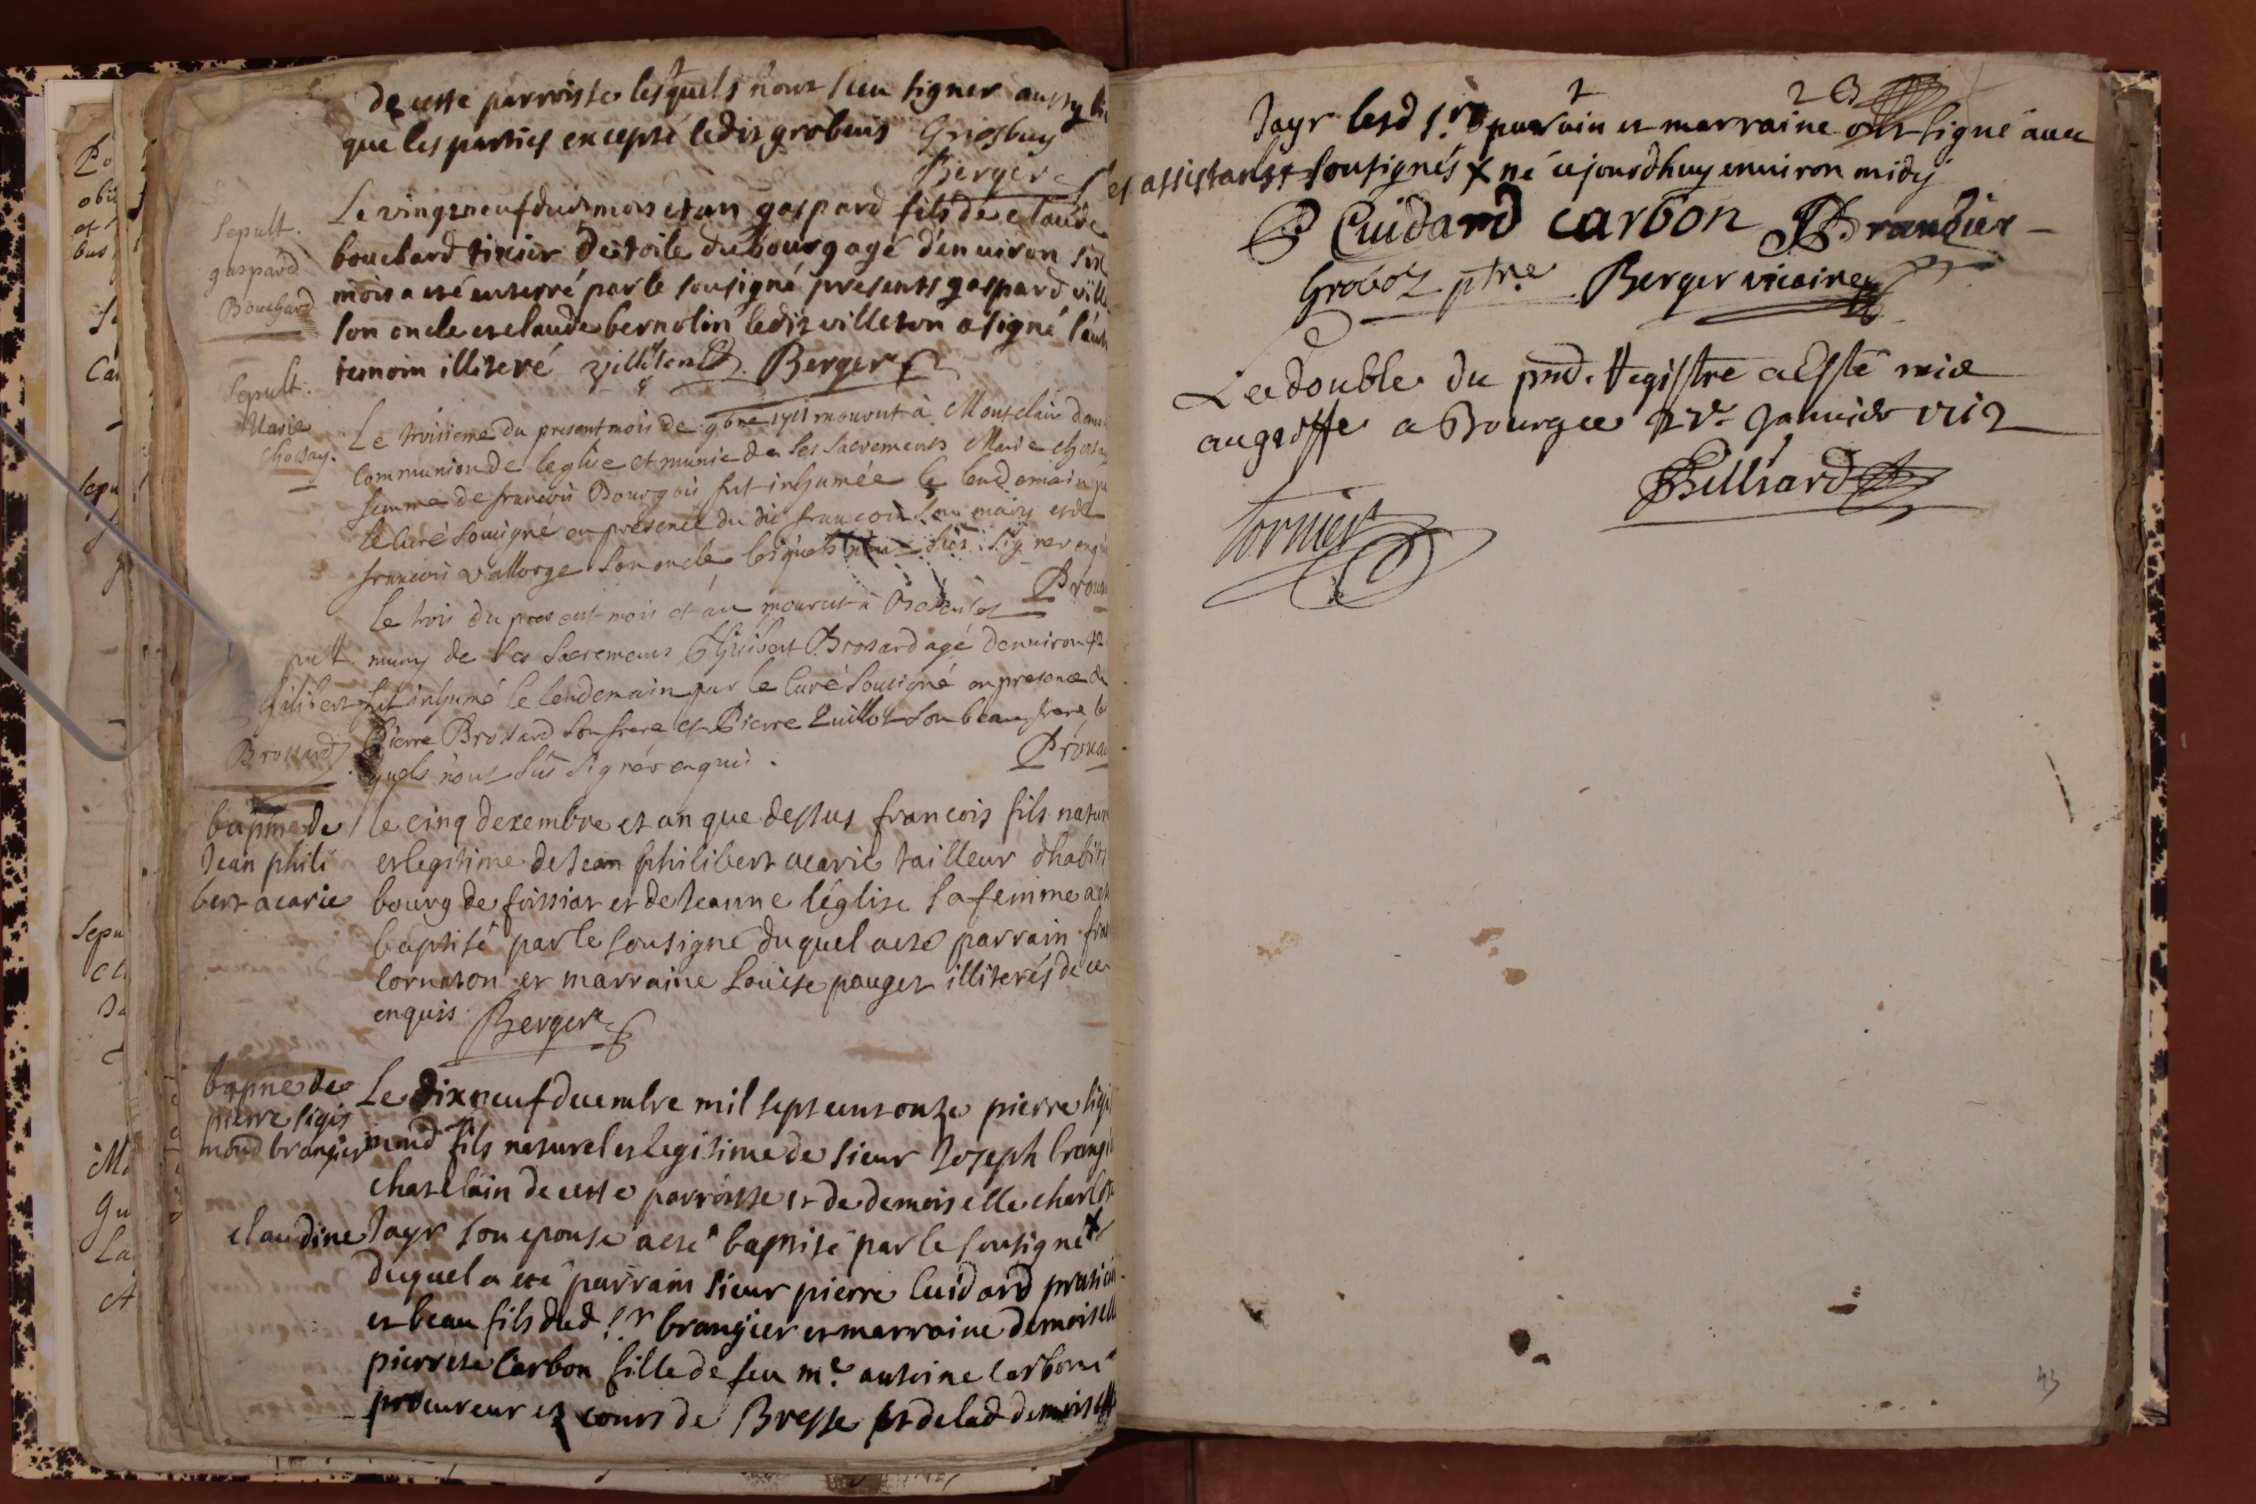 de cette parroisse lesquels n'ont sceu signer aussy
que les parties excepté ledit grobuis
Berger
Sepult.
gaspard
Bouchard
Le vingt neuf dud mois et an gaspard fils de claude
bouchard tixier de toile du bourg agé d'environ six
mois a eté enterré par le sousigné presents gaspard
son oncle et claude bernolin ledit villeton a signé l'autre
temoin illiteré Villeton Berger
Sepult.
Marie
Chossay.
Le troisieme du present mois de 9bre 1711 mourut à Montclair dans
Communion de leglise et munie de ses Sacrements Marie
femme de francois Bourgois fut inhumée le lendemain
le Curé Sousigné en présence du dit francois Son mary et de
francois vallorge Son oncle lesquels signer
le trois du present mois et an mourut à
pult.
philibert
Brossard
muny de ses Sacremens Philibert Brossard agé denviron 42
fut inhumé le lendemain par le Curé Sousigné en presence de
Pierre Brossard Son frere et Pierre Guillot Son beau frere les
quels n'ont Sû signer enquis.
bapme de
Jean phili
bert acarie
le cinq dexembre et an que dessus francois fils natur
et legitime de Jean philibert acarie tailleur dhabits
bourg de foissiat et de Jeanne léglise sa femme a eté
baptisé par le sousigné duquel a eté parrain
cornaton et marraine Louise pauget illiterés de ce
enquis Berger
bapme de
pierre sigis
mond brangier
Le dix neuf decembre mil sept cent onze pierre sigis
mond fils naturel et legitime de sieur Joseph brangi
chatelain de cette parroisse et de demoiselle charlot
claudine Jayr son epouse a eté baptisé par le sousigné x
duquel a eté parrain sieur pierre Cuidard praticien
et beau fils dud Sr brangier et marraine demoiselle
pierrete Carbon fille de feu me antoine Carbon
procureur et cours de Bresse et de lad demoiselle
Jayr lesd srs parrain et marraine ont signé avec
les assistants sousignés x né cejourdhuy environ midy
P Cuidard carbon JBrangier
Groboz ptre Berger vicaire
Le double du pnd. Registre a Esté mis
au greffe a Bourg ce Janvier 1712
Billiard
Tornier
43